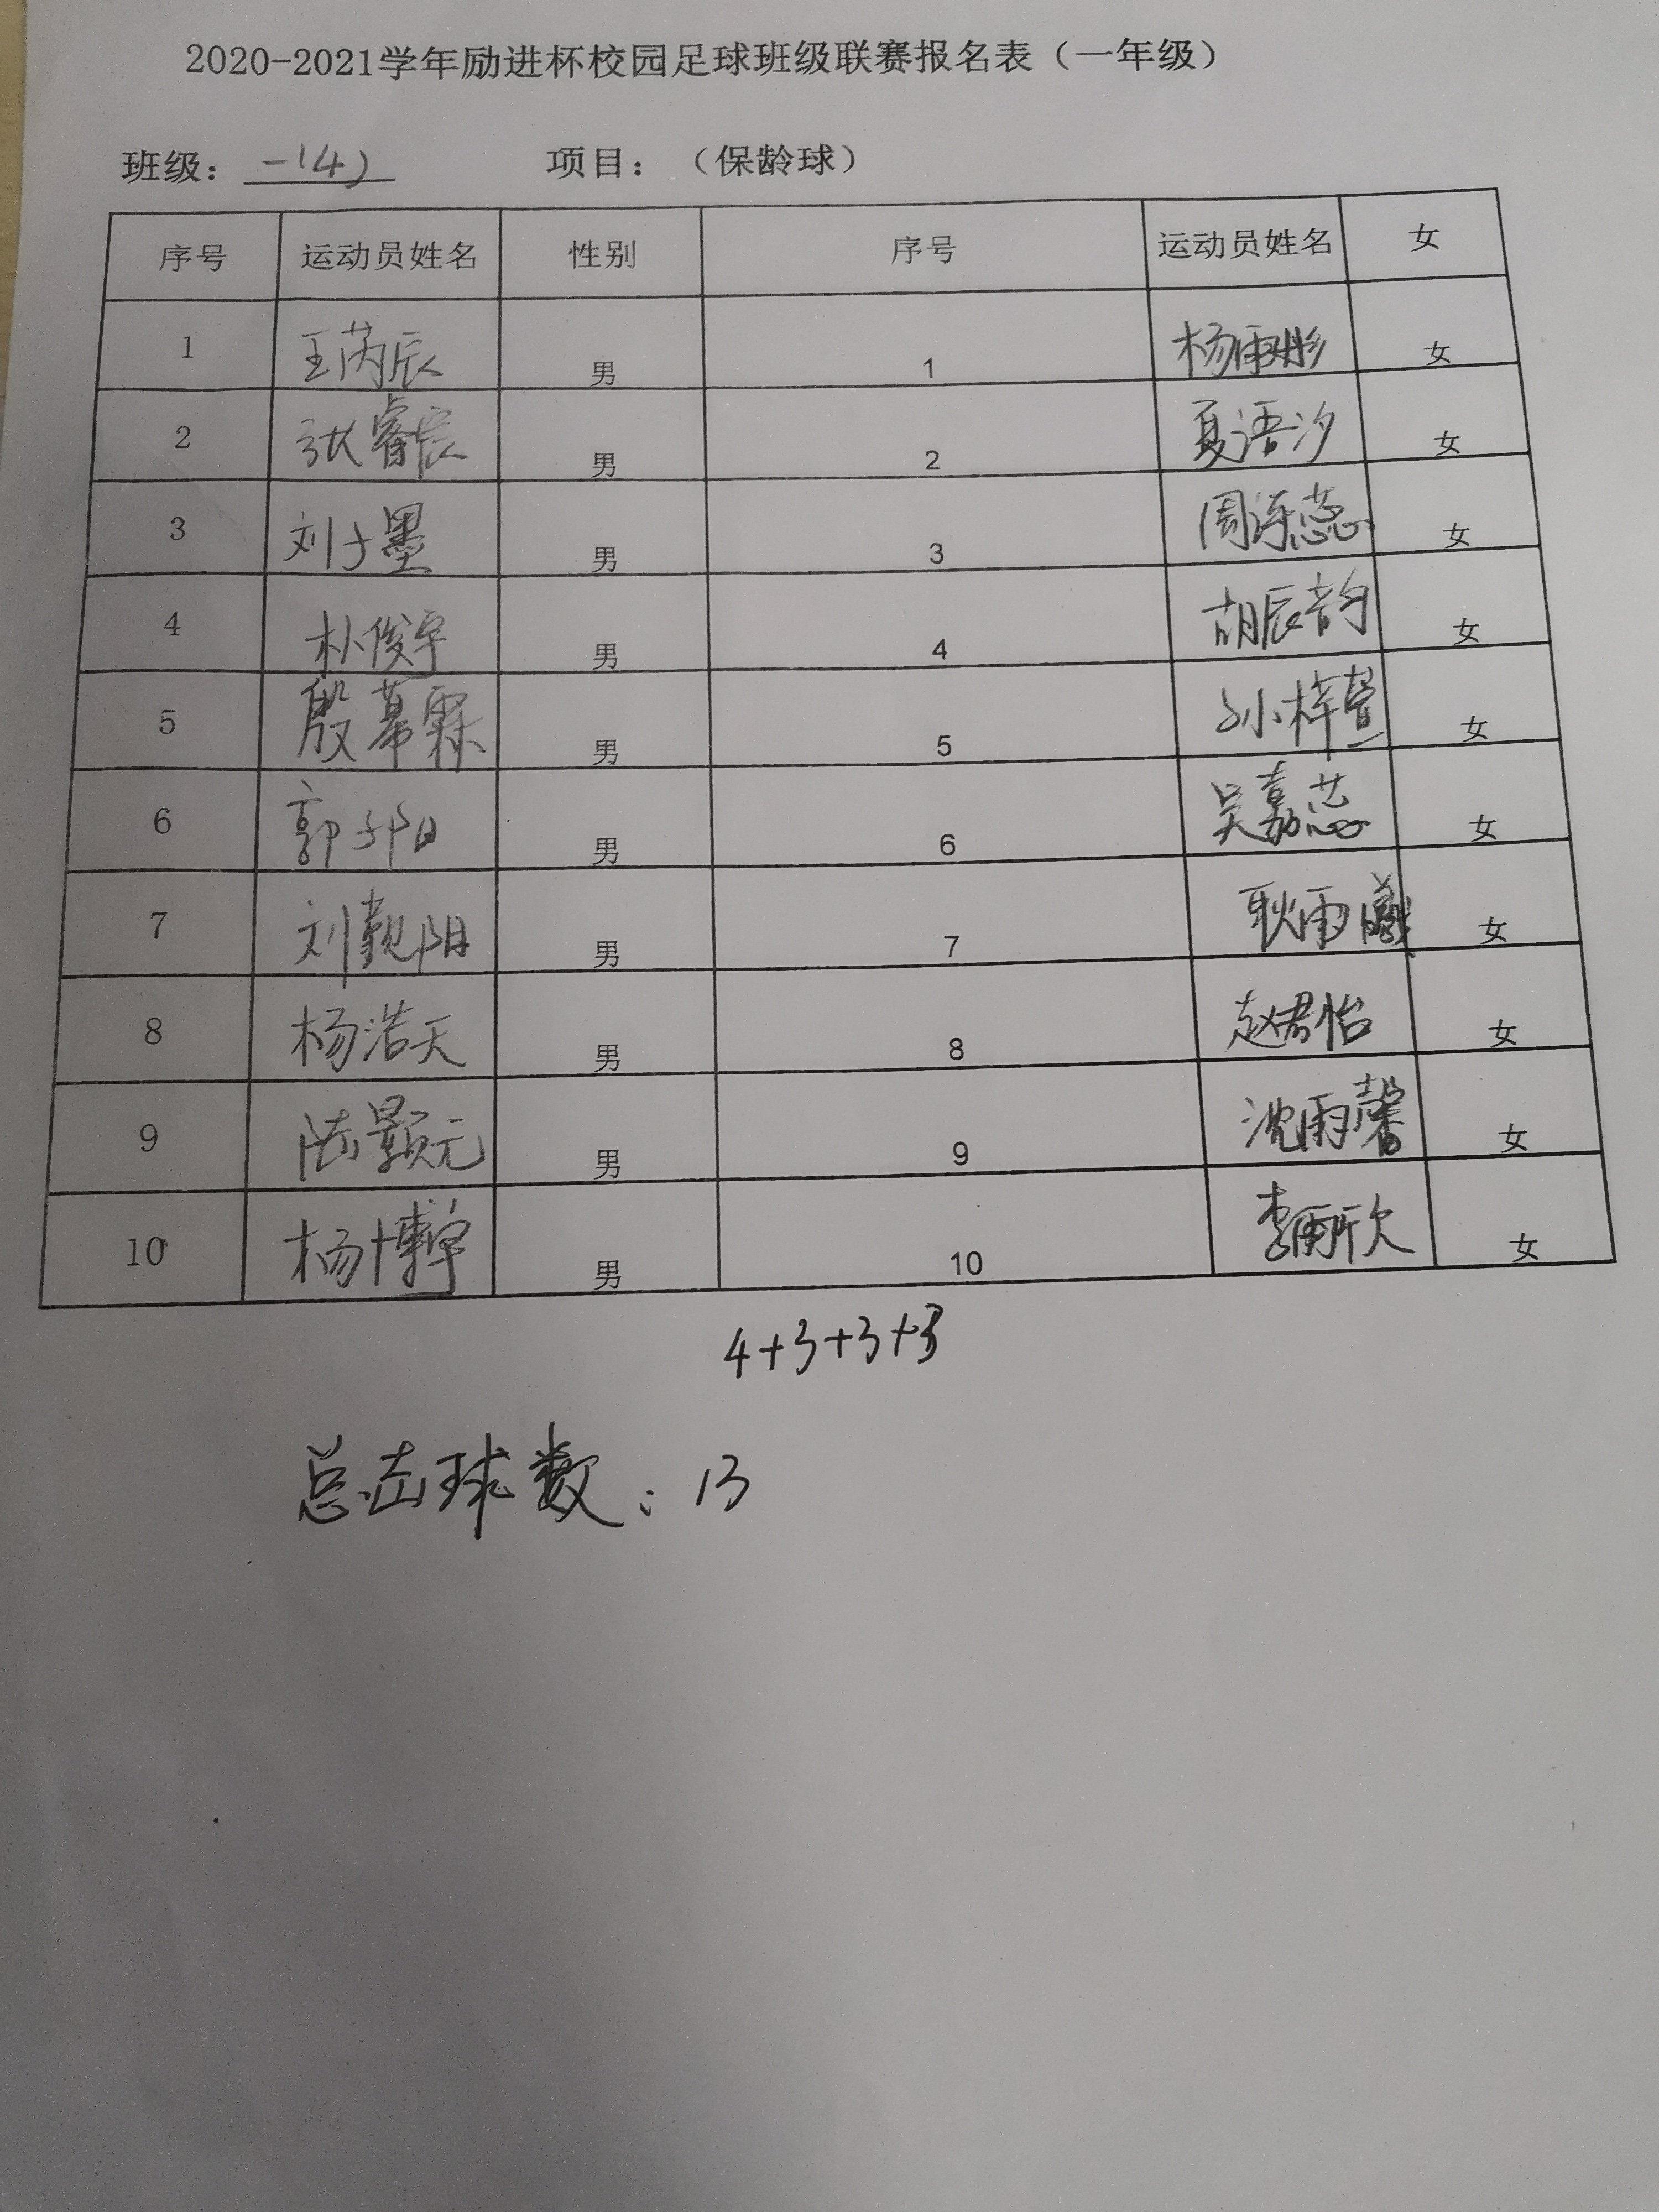 2020-2021学年励进杯校园足球班级联赛报名表（一年级）
班级：一(4) 项目：（保龄球）
序号 运动员姓名 性别 序号 运动员姓名 女
1 王芮辰 男 1 杨雨彤 女
2 张睿宸 男 2 夏语汐 女
3 刘子墨 男 3 周涛蕊 女
4 朴俊宇 男 4 胡辰韵 女
5 殷慕霖 男 5 孙梓萱 女
6 郭子阳 男 6 吴嘉芯 女
7 刘觐阳 男 7 耿雨曦 女
8 杨浩天 男 8 赵君怡 女
9 陆颢元 男 9 沈雨馨 女
10 杨博卓 男 10 李雨欣 女
4+3+3+3
总击球数：13